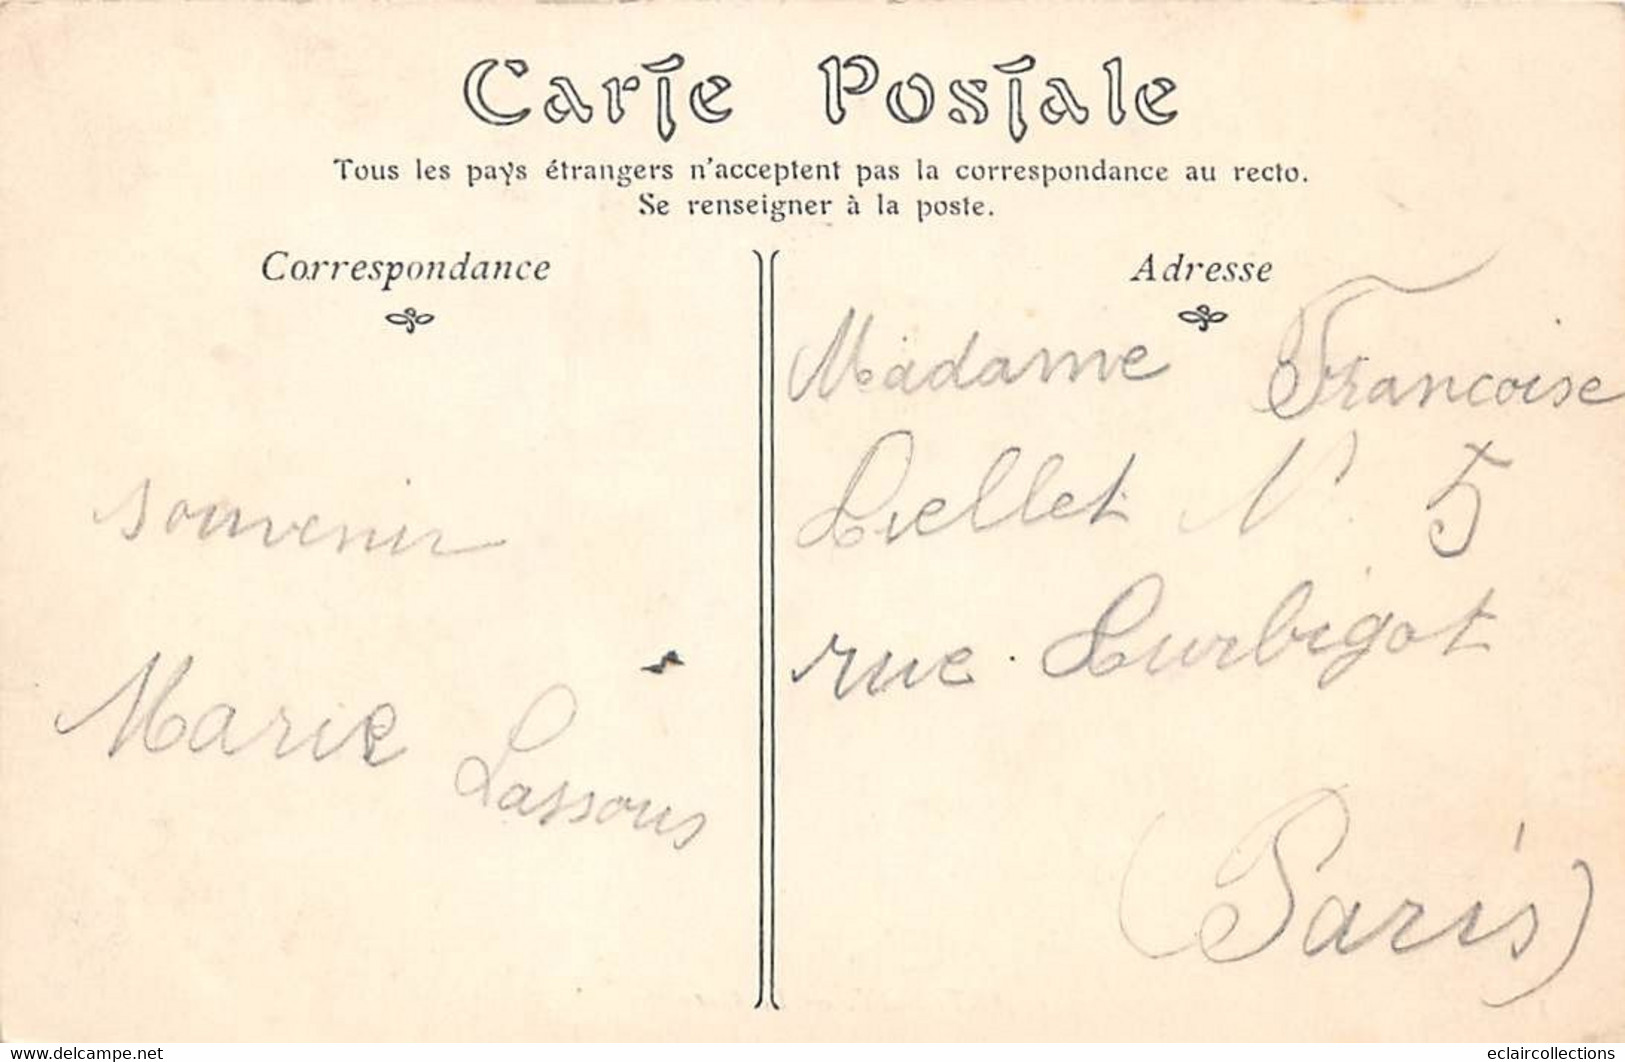 Carte Postale
Tous les pays étrangers n'acceptent pas la correspondance au recto.
Se renseigner à la poste.
Correspondance
souvenir
Marie Lassous
Adresse
Madame Francoise
N. 5
rue Lurbigot
(Paris)
www.delcampe.net
eclaircollections